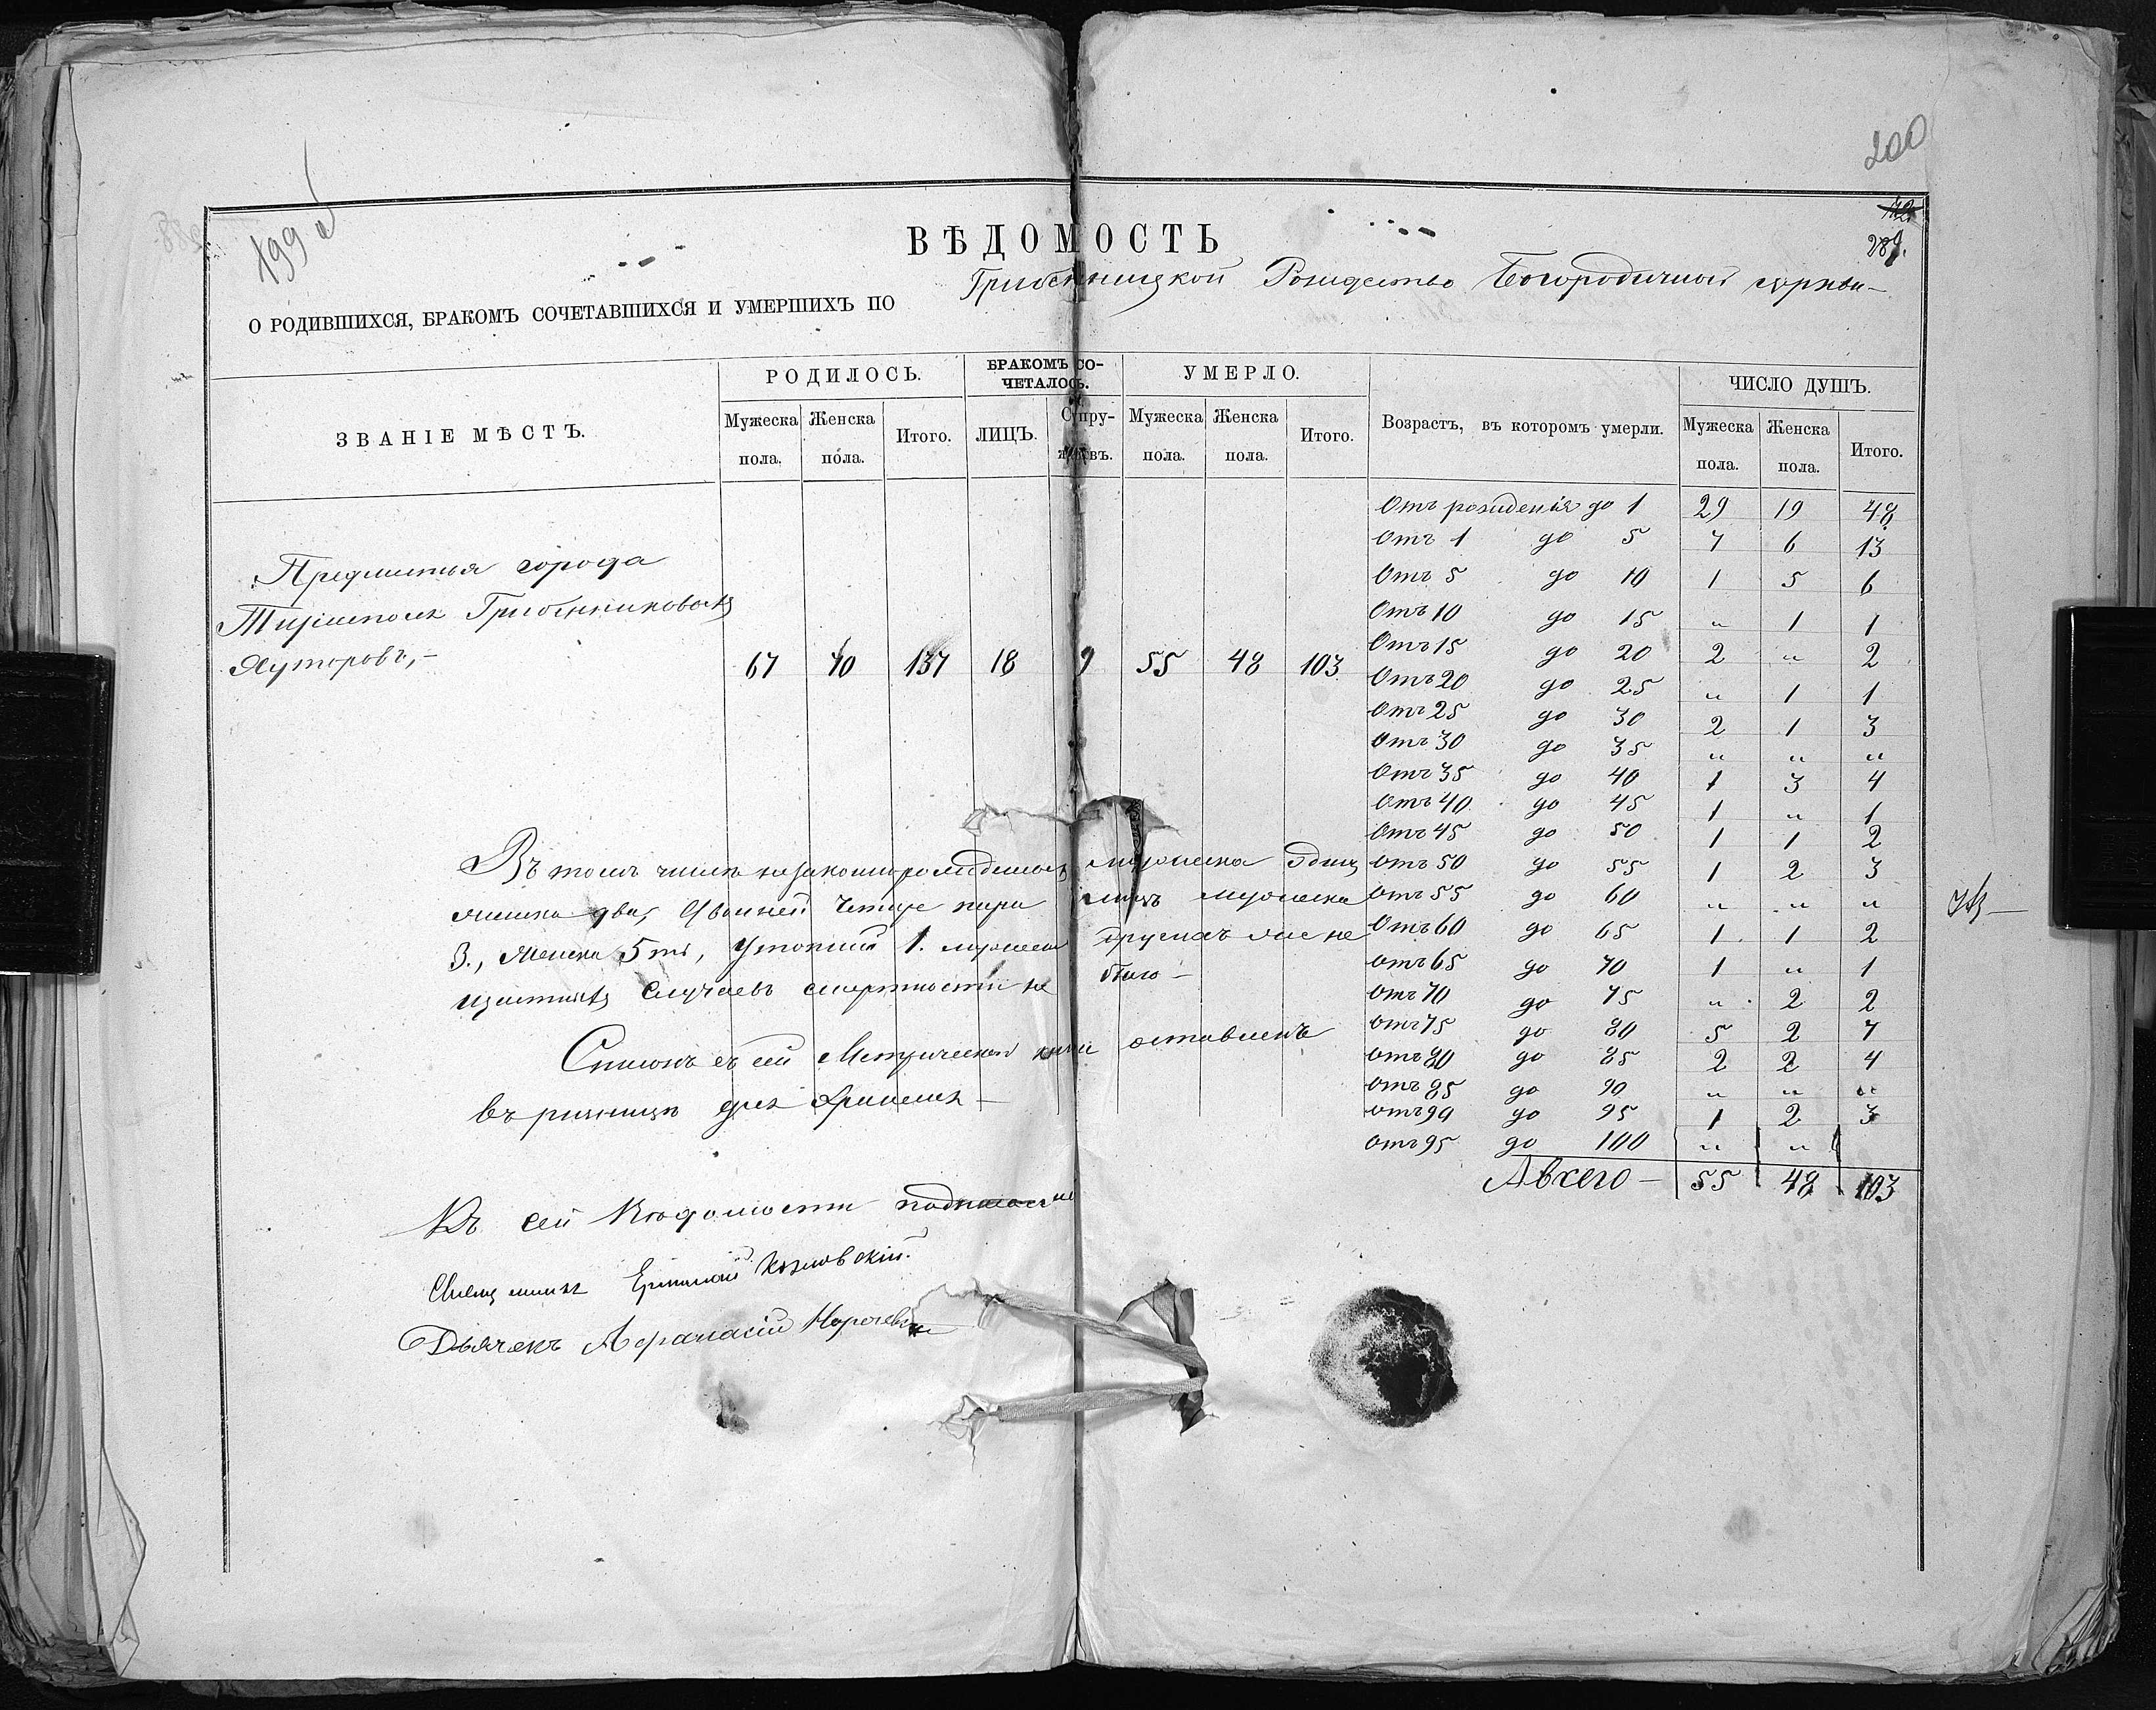 199
200
289.
ВѢДОМОСТЬ
О РОДИВШИХСЯ, БРАКОМЪ СОЧЕТАВШИХСЯ И УМЕРШИХЪ ПО Рождество Богородичной церкви
ЗВАНІЕ МѢСТЪ.
РОДИЛОСЬ.
Мужеска пола.
Женска пола.
Итого.
БРАКОМЪ СО-
ЧЕТАЛОСЬ.
ЛИЦЪ.
Супру-
жествъ.
УМЕРЛО.
Мужеска пола.
Женска пола.
Итого.
Возрастъ, въ которомъ умерли.
ЧИСЛО ДУШЪ.
Мужеска пола.
Женска пола.
Итого.
Предместья города
Хуторовъ,- 67 70 137 18 9 55 48 103
Отъ рождения до 1 29 19 48
Отъ 1 до 5 7 6 13
Отъ 5 до 10 1 5 6
Отъ 10 до 15 „ 1 1
Отъ 15 до 20 2 „ 2
Отъ 20 до 25 „ 1 1
Отъ 25 до 30 2 1 3
Отъ 30 до 35 „ „ „
Отъ 35 до 40 1 3 4
Отъ 40 до 45 1 „ 1
Отъ 45 до 50 1 1 2
Отъ 50 до 55 1 2 3
Отъ 55 до 60 „ „ „
Отъ 60 до 65 1 1 2
Отъ 65 до 70 1 „ 1
Отъ 70 до 75 „ 2 2
Отъ 75 до 80 5 2 7
Отъ 80 до 85 2 2 4
Отъ 85 до 90 „ „ „
Отъ 90 до 95 1 2 3
Отъ 95 до 100 „ „
Авсего — 55 48 103
Въ томъ числе незаконнорожденныхъ мужеска
женска два, двойней четыре пары мужеска
3., женска 5ть, 1. мужеска
случаевъ смертности не было —
Списокъ съ сей Метрической книги оставленъ
въ ризнице для
Къ сей Ведомости
Священникъ Козловский.
Дьячекъ Афанасий